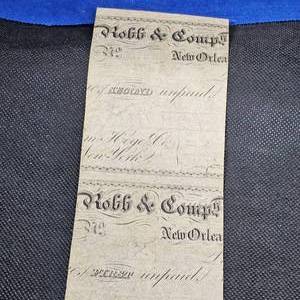 Robb & Compy
No
New Orlea
of SECOND unpaid
New York
Robb & Compy
No
New Orlea
of FIRST unpaid